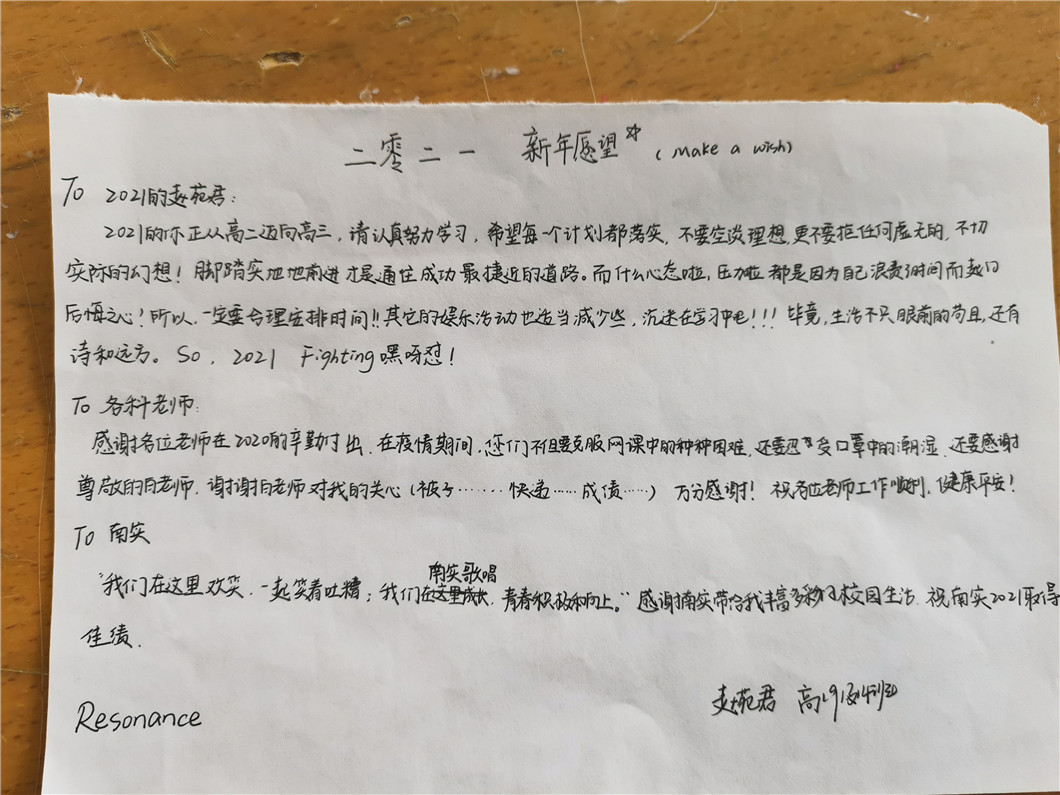 二零二一 新年愿望 (make a wish)
To 2021的赵苑君:
2021的你正从高二迈向高三,请认真努力学习,希望每一个计划都落实,不要空谈理想,更不要抱任何虚无的,不切
实际的幻想!脚踏实地地前进才是通往成功最捷近的道路。而什么心态啦,压力啦都是因为自己浪费了时间而起的
后悔之心!所以,一定要合理安排时间!!其它的娱乐活动也适当减少些,沉迷在学习中吧!!!毕竟,生活不只眼前的苟且,还有
诗和远方。So,2021 Fighting嘿呀怼!
To 各科老师:
感谢各位老师在2020的辛勤付出,在疫情期间,您们不但要克服网课中的种种困难,还要忍受口罩中的潮湿,还要感谢
尊敬的白老师,谢谢白老师对我的关心(被子……快递……成绩……)万分感谢!祝各位老师工作顺利,健康平安!
To 南实
"我们在这里欢笑,一起笑着吐糟;我们在南实歌唱,青春积极和向上。"感谢南实带给我丰富多彩的校园生活,祝南实2021取得
佳绩.
赵苑君 高二
Resonance